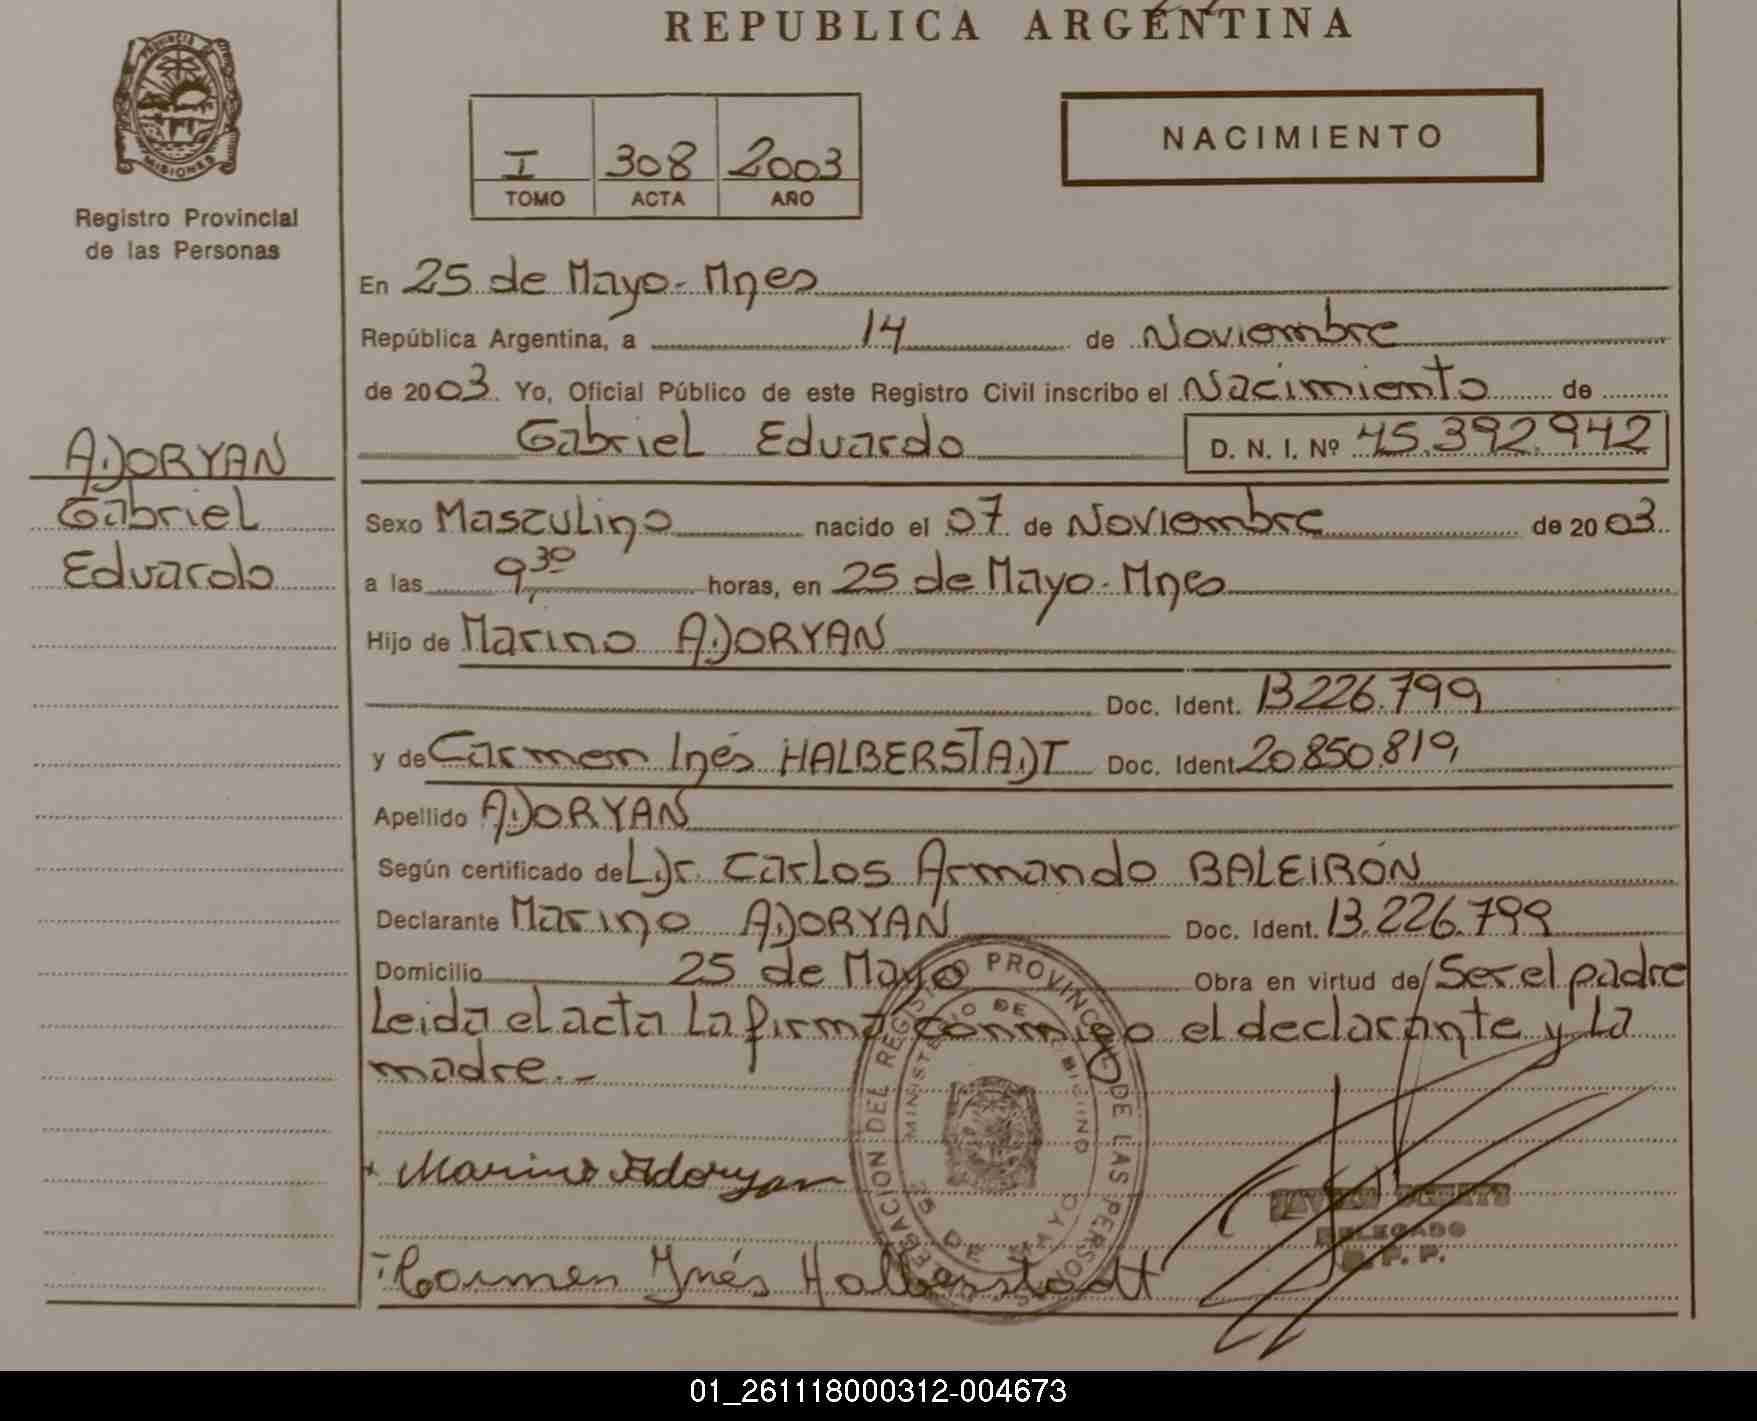 REPUBLICA ARGENTINA
PROVINCIA DE
MISIONES
Registro Provincial
de las Personas
I 308 2003
TOMO ACTA AÑO
NACIMIENTO
En 25 de Mayo - Mnes
República Argentina, a 14 de Noviembre
de 2003. Yo, Oficial Público de este Registro Civil inscribo el Nacimiento de
Gabriel Eduardo D. N. I. Nº 45.392.942
ADORYAN
Gabriel
Eduardo
Sexo Masculino nacido el 07 de Noviembre de 2003
a las 9,30 horas, en 25 de Mayo - Mnes
Hijo de Marino ADORYAN
Doc. Ident. 13226.799
y de Carmen Inés HALBERSTADT Doc. Ident. 20.850.819,
Apellido ADORYAN
Según certificado de L. Dr. Carlos Armando BALEIRÓN
Declarante Marino ADORYAN Doc. Ident. 13.226.799
Domicilio 25 de Mayo Obra en virtud de Ser el padre
Leida el acta la firma conmigo el declarante y la
madre.-
DELEGACION DEL REGISTRO PROVINCIAL DE LAS PERSONAS
MINISTERIO DE GOBIERNO
25 DE MAYO
Marino Adoryan
DELEGADO
R. P. P.
Carmen Inés Halberstadt
01_261118000312-004673